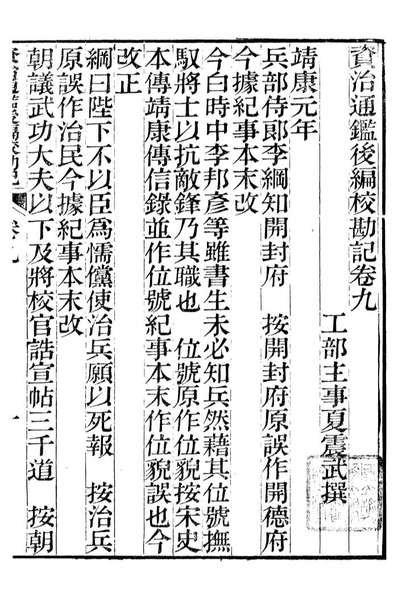 資治通鑑後編校勘記卷九
工部主事夏震武撰
靖康元年
兵部侍郎李綱知開封府　按開封府原誤作開德府
今據紀事本末改
今白時中李邦彥等雖書生未必知兵然藉其位號撫
馭將士以抗敵鋒乃其職也　位號原作位貌按宋史
本傳靖康傳信錄並作位號紀事本末作位貌誤也今
改正
綱曰陛下不以臣爲懦儻使治兵願以死報　按治兵
原誤作治民今據紀事本末改
朝議武功大夫以下及將校官誥宣帖三千道　按朝
卷九
一